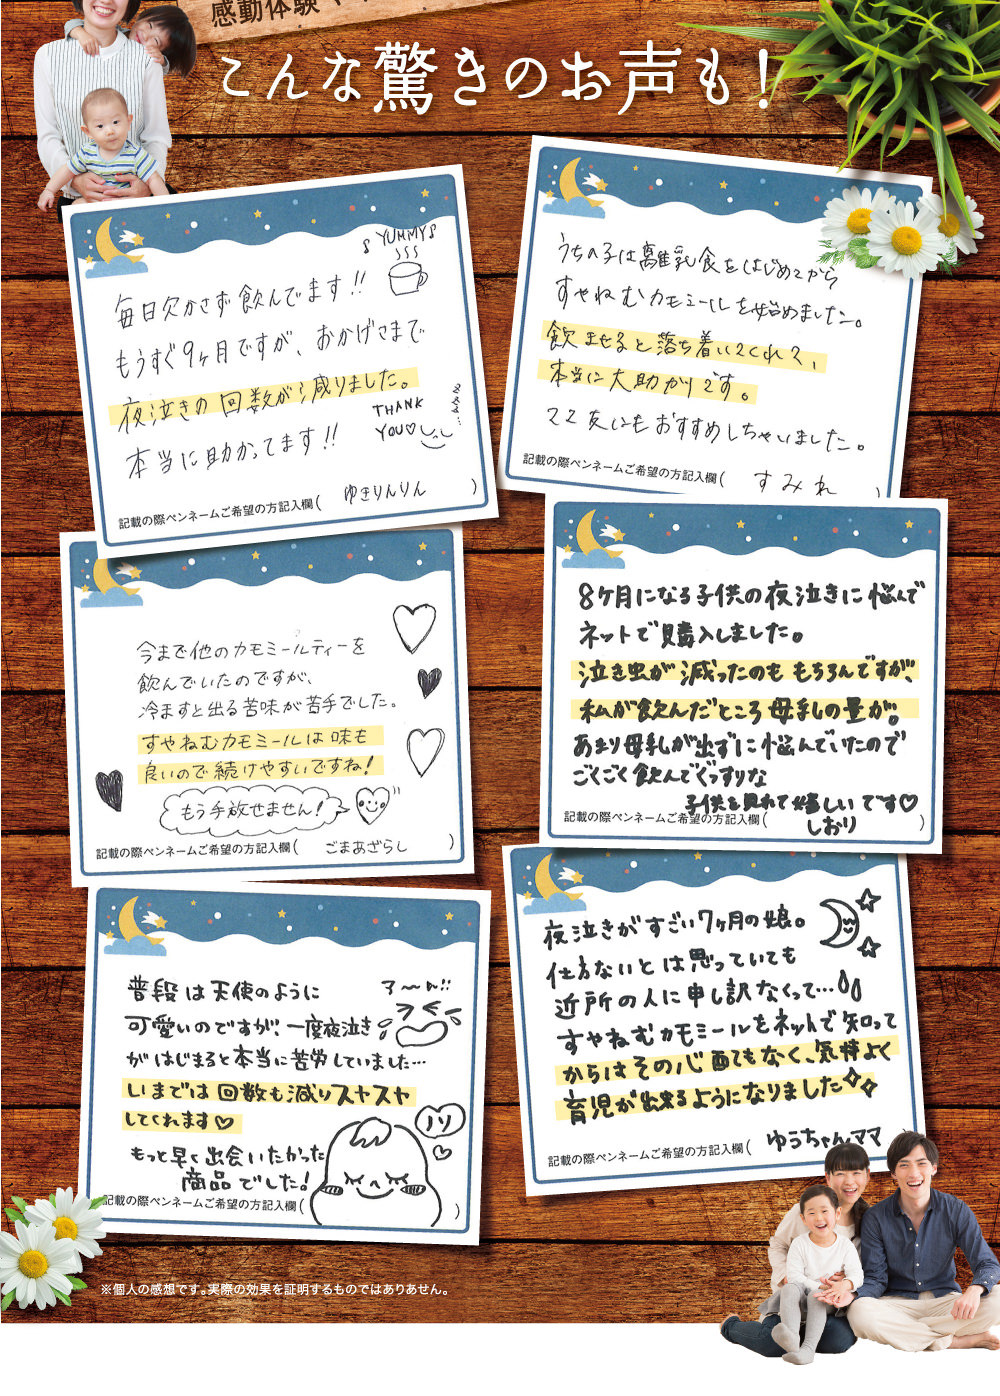 感動体験
こんな驚きのお声も!
YUMMY
毎日欠かさず飲んでます!!
もうすぐ9ヶ月ですが、おかげさまで
夜泣きの回数が減りました。
本当に助かってます!!
THANK
YOU♡
記載の際ペンネームご希望の方記入欄( ゆきりんりん )
うちの子は離乳食をはじめてから
すやねむカモミールを始めました。
飲ませると落ち着いてくれて、
本当に大助かりです。
ママ友にもおすすめしちゃいました。
記載の際ペンネームご希望の方記入欄( すみれ )
今まで他のカモミールティーを
飲んでいたのですが、
冷ますと出る苦味が苦手でした。
すやねむカモミールは味も
良いので続けやすいですね!
もう手放せません!
記載の際ペンネームご希望の方記入欄( ごまあざらし )
8ヶ月になる子供の夜泣きに悩んで
ネットで購入しました。
泣き虫が減ったのももちろんですが、
私が飲んだところ母乳の量が。
あまり母乳が出ずに悩んでいたので
ごくごく飲んでぐっすりな
子供を見れて嬉しいです♡
記載の際ペンネームご希望の方記入欄( しおり )
普段は天使のように
可愛いのですが、一度夜泣き
がはじまると本当に苦労していました…
いまでは回数も減りスヤスヤ
してくれます♡
もっと早く出会いたかった
商品でした!
ノリ
記載の際ペンネームご希望の方記入欄( )
夜泣きがすごい7ヶ月の娘。
仕方ないとは思っていても
近所の人に申し訳なくって…
すやねむカモミールをネットで知って
からはその心配もなく、気持よく
育児が出来るようになりました
記載の際ペンネームご希望の方記入欄( ゆうちゃんママ
※個人の感想です。実際の効果を証明するものではありあせん。